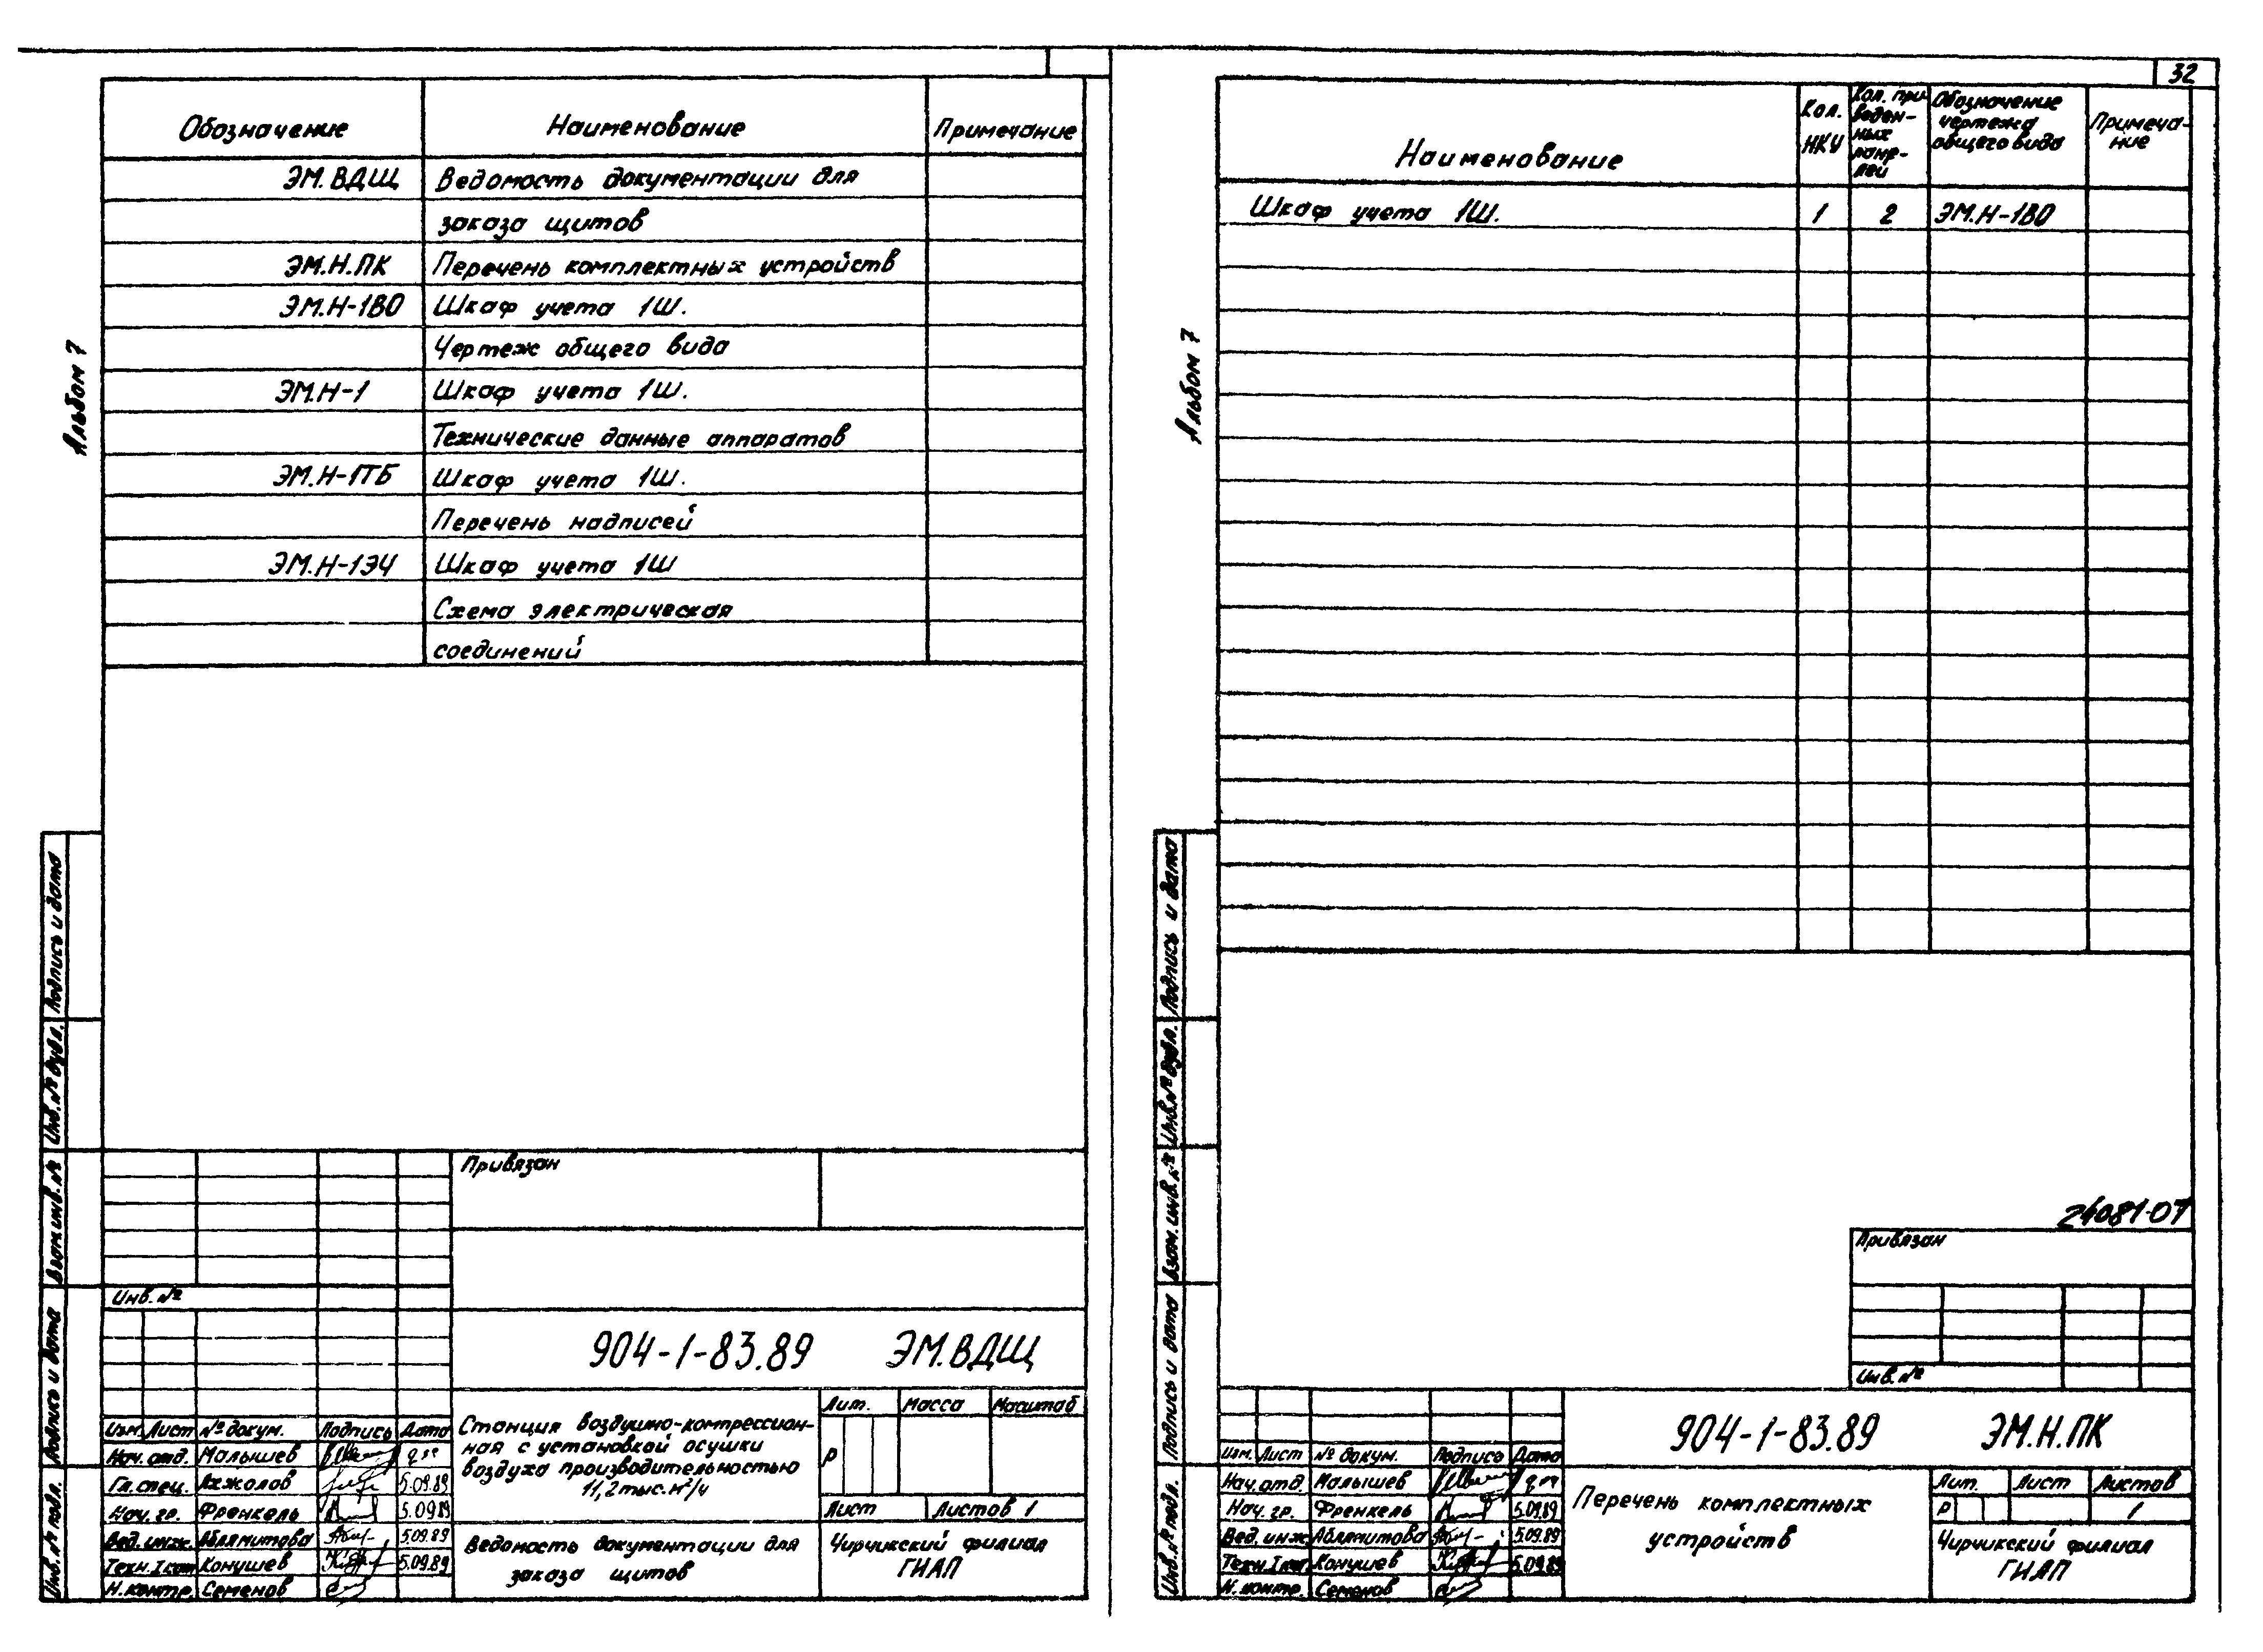 Альбом 7
Обозначение Наименование Примечание
ЭМ.ВДЩ Ведомость документации для
заказа щитов
ЭМ.Н.ПК Перечень комплектных устройств
ЭМ.Н-1ВО Шкаф учета 1Ш.
Чертеж общего вида
ЭМ.Н-1 Шкаф учета 1Ш.
Технические данные аппаратов
ЭМ.Н-1ТБ Шкаф учета 1Ш.
Перечень надписей
ЭМ.Н-1Э4 Шкаф учета 1Ш
Схема электрическая
соединений
Подпись и дата
Инв. № дубл.
Взам. инв. №
Подпись и дата
Инв. № подл.
Привязан
Инв. №
904-1-83.89 ЭМ.ВДЩ
Изм. Лист № докум. Подпись Дата
Нач. отд. Малышев
Гл. спец. Ахжолов 5.09.89
Нач. гр. Френкель 5.09.89
Вед. инж. Аблямитова 5.09.89
Техн. I кат. Конушев 5.09.89
Н. контр. Семенов
Станция воздушно-компрессион-
ная с установкой осушки
воздуха производительностью
11,2 тыс. м³/ч
Ведомость документации для
заказа щитов
Лит. Масса Масштаб
Р
Лист Листов 1
Чирчикский филиал
ГИАП
32
Альбом 7
Наименование
Кол.
НКУ
Кол. при-
веден-
ных
пане-
лей
Обозначение
чертежа
общего вида
Примеча-
ние
Шкаф учета 1Ш. 1 2 ЭМ.Н-1ВО
Подпись и дата
Инв. № дубл.
Взам. инв. №
Подпись и дата
Инв. № подл.
24081-07
Привязан
Инв. №
904-1-83.89 ЭМ.Н.ПК
Изм. Лист № докум. Подпись Дата
Нач. отд. Малышев
Нач. гр. Френкель 5.09.89
Вед. инж. Аблямитова 5.09.89
Техн. I кат. Конушев 5.09.89
Н. контр. Семенов
Перечень комплектных
устройств
Лит. Лист Листов
Р 1
Чирчикский филиал
ГИАП